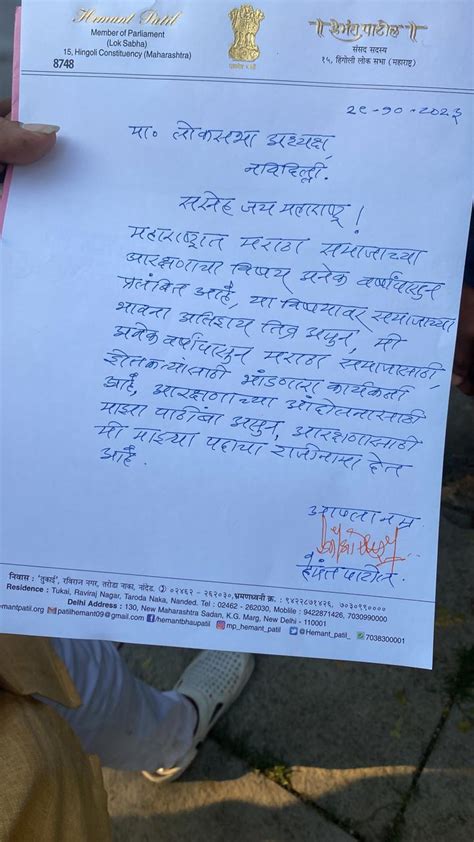 Hemant Patil
Member of Parliament
(Lok Sabha)
15, Hingoli Constituency (Maharashtra)
8748
॥ हेमंत पाटील ॥
संसद सदस्य
१५, हिंगोली लोक सभा (महाराष्ट्र)
२९-१०-२०२३
मा. लोकसभा अध्यक्ष,
नविदिल्ली.
सस्नेह जय महाराष्ट्र!
महाराष्ट्रात मराठा समाजाच्या
आरक्षणाचा विषय अनेक वर्षांपासुन
प्रलंबित आहे, या विषयावर समाजाच्या
भावना अतिशय तिव्र असुन, मी
अनेक वर्षांपासुन मराठा समाजासाठी,
शेतकऱ्यांसाठी भांडणारा कार्यकर्ता
आहे, आरक्षणाच्या आंदोलनासाठी
माझा पाठींबा असुन, आरक्षणासाठी
मी माझ्या पदाचा राजीनामा देत
आहे.
आपला नम्र
हेमंत पाटील
निवास : 'तुकाई', रविराज नगर, तरोडा नाका, नांदेड. ०२४६२ - २६२०३०, भ्रमणध्वनी क्र. : ९४२२८७१४२६, ७०३०९९००००
Residence : Tukai, Raviraj Nagar, Taroda Naka, Nanded. Tel : 02462 - 262030, Mobile : 9422871426, 7030990000
Delhi Address : 130, New Maharashtra Sadan, K.G. Marg, New Delhi - 110001
hemantpatil.org patilhemant09@gmail.com /hemantbhaupatil mp_hemant_patil @Hemant_patil_ 7038300001